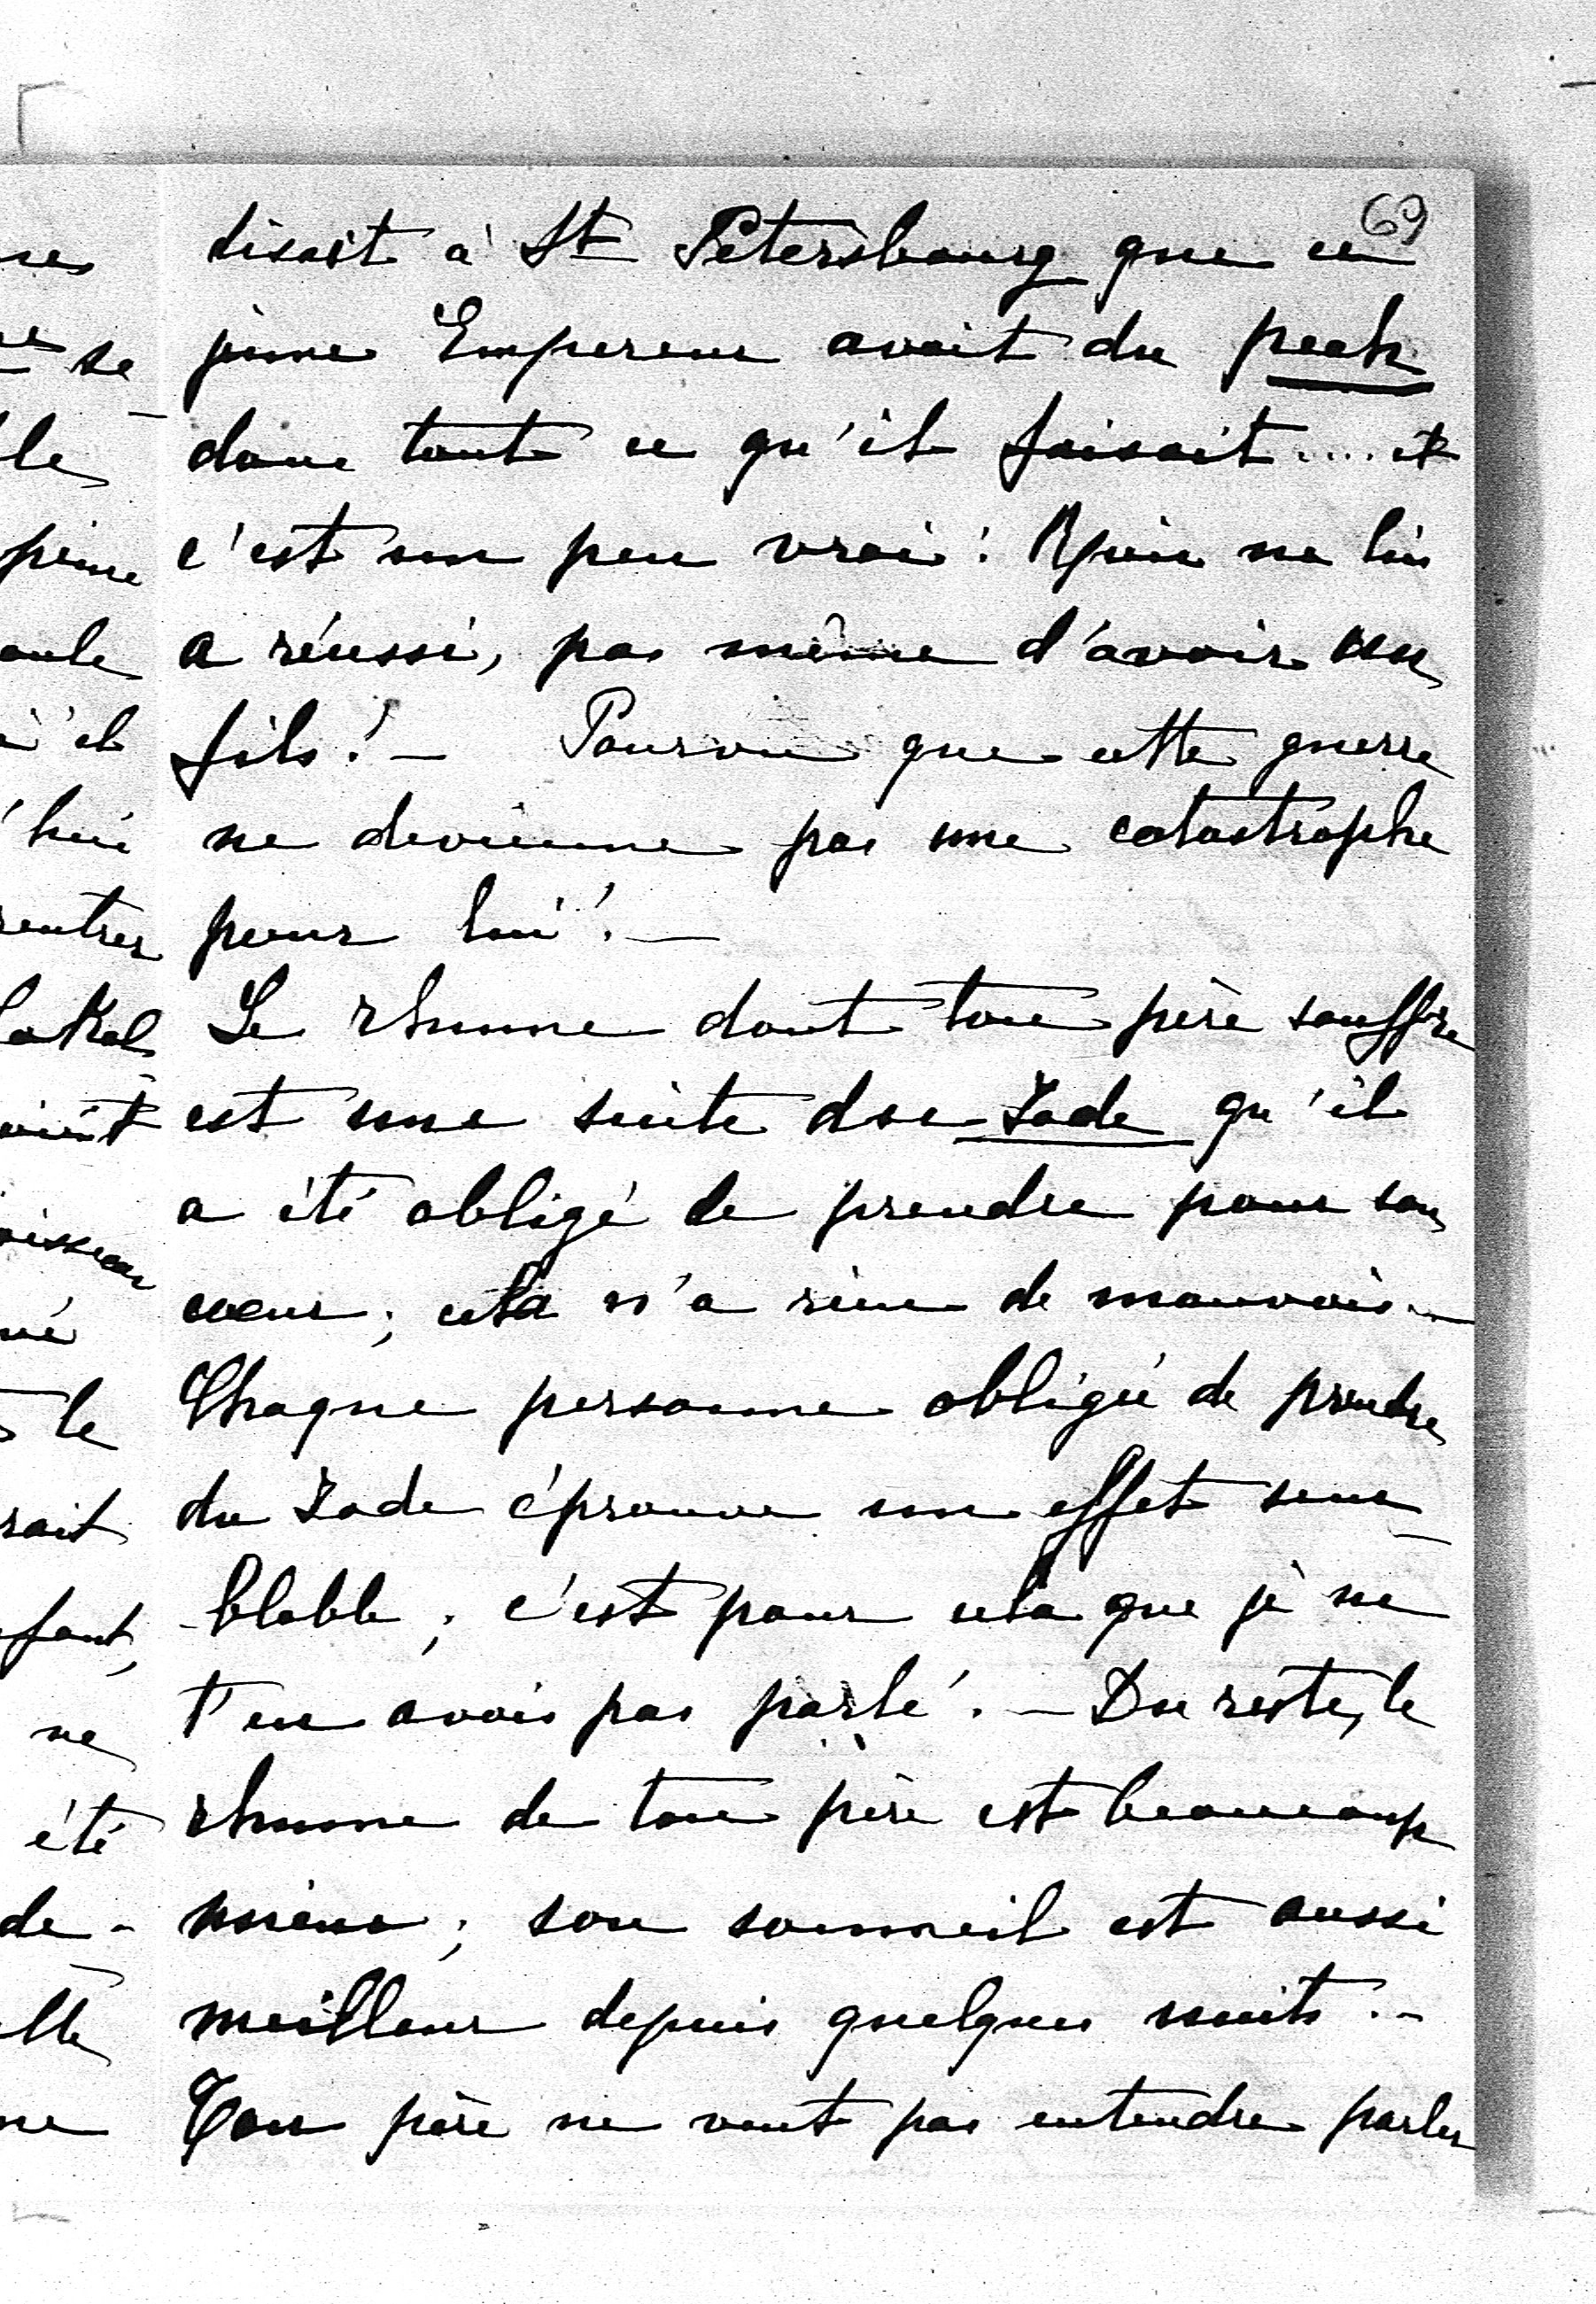 69
disait à St Petersbourg que ce
jeune Empereur avait du pech
dans tout ce qu'il faisait .... et
c'est un peu vrai! Rien ne lui
a réussi, pas même d'avoir un
fils! — Pourvu que cette guerre
ne devienne pas une catastrophe
pour lui! —
Le rhume dont ton père souffre
est une suite du Jode qu'il
a été obligé de prendre pour son
coeur; cela n'a rien de mauvais. —
Chaque personne obligée de prendre
du Jode éprouve un effet sem-
-blable; c'est pour cela que je ne
t'en avais pas parlé. — Du reste, le
rhume de ton père est beaucoup
moins; son sommeil est aussi
meilleur depuis quelques nuits. —
Ton père ne veut pas entendre parler